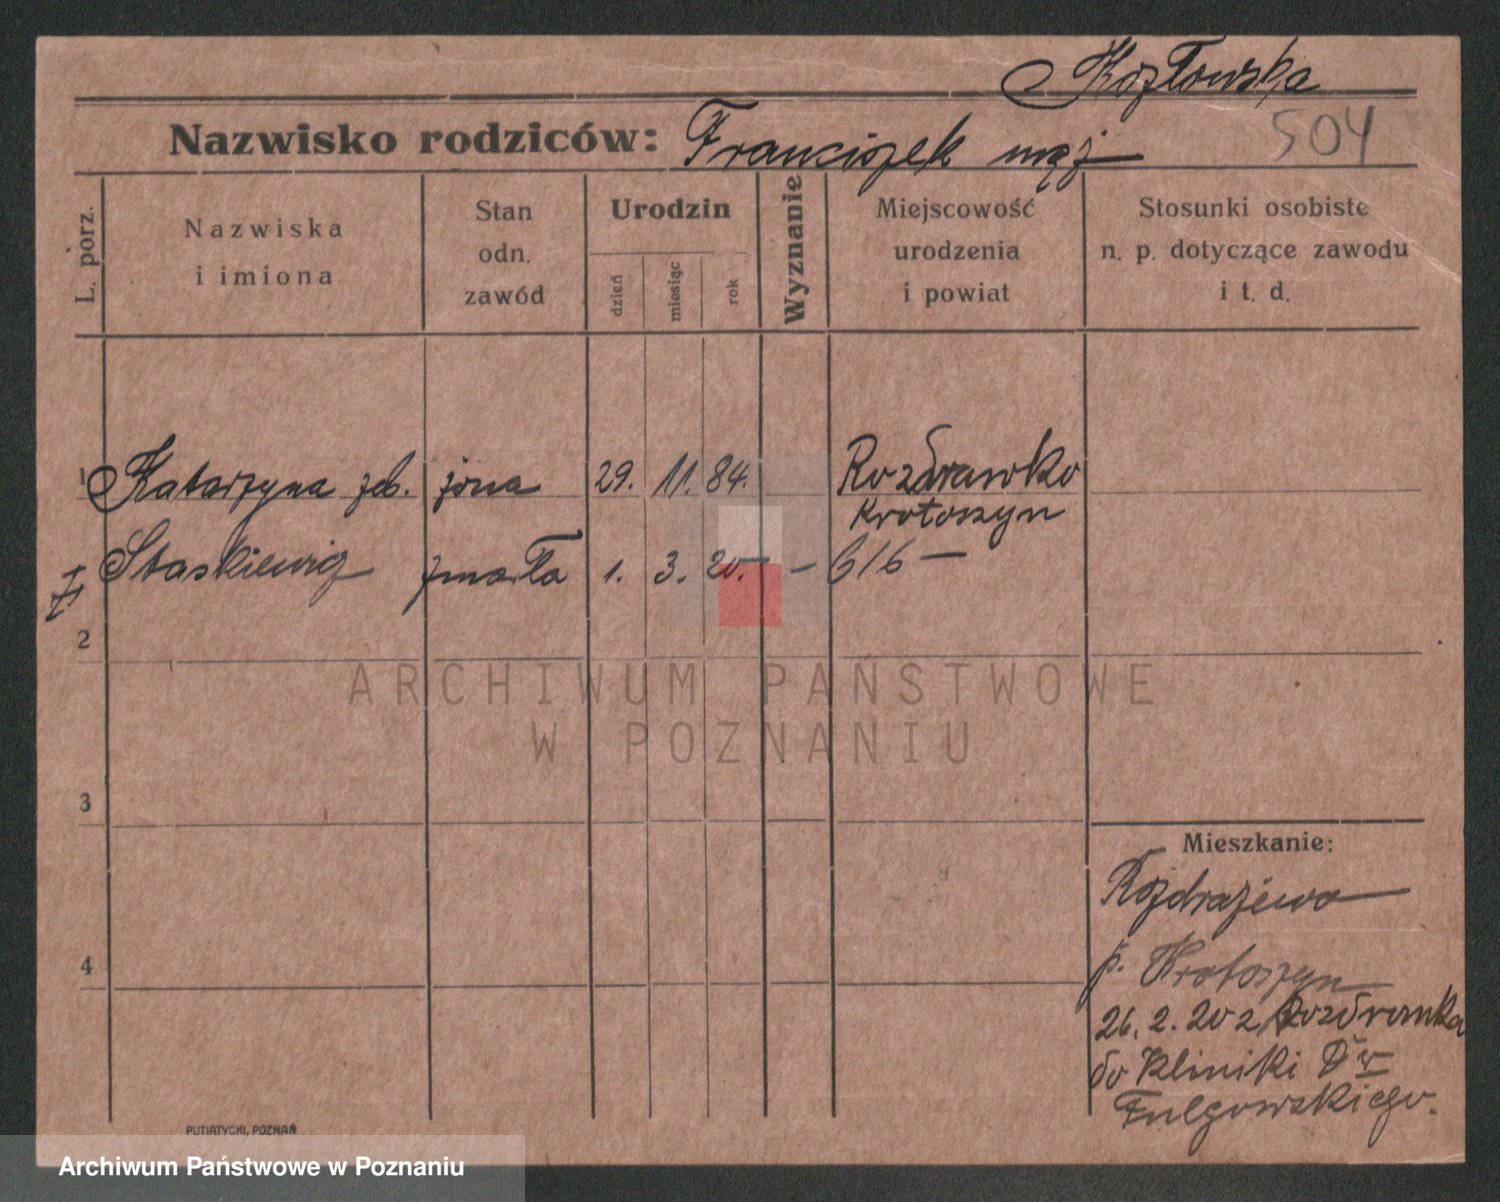 Kozłowska
Nazwisko rodziców: Franciszek mąż 504
L. porz.
Nazwiska
i imiona
Stan
odn.
zawód
Urodzin
dzień
miesiąc
rok
Wyznanie
Miejscowość
urodzenia
i powiat
Stosunki osobiste
n. p. dotyczące zawodu
i t. d.
1 Katarzyna żona 29. 11. 84. Rozdrawko
Krotoszyn
Staskiewicz zmarła 1. 3. 20. – 616 –
2
3
4
Mieszkanie:
Rozdrażewo
p. Krotoszyn
26. 2. 20 z Rozdrawka
do Kliniki Dr
Fulgowskiego.
ARCHIWUM PAŃSTWOWE
W POZNANIU
PUTIATYCKI, POZNAŃ
Archiwum Państwowe w Poznaniu